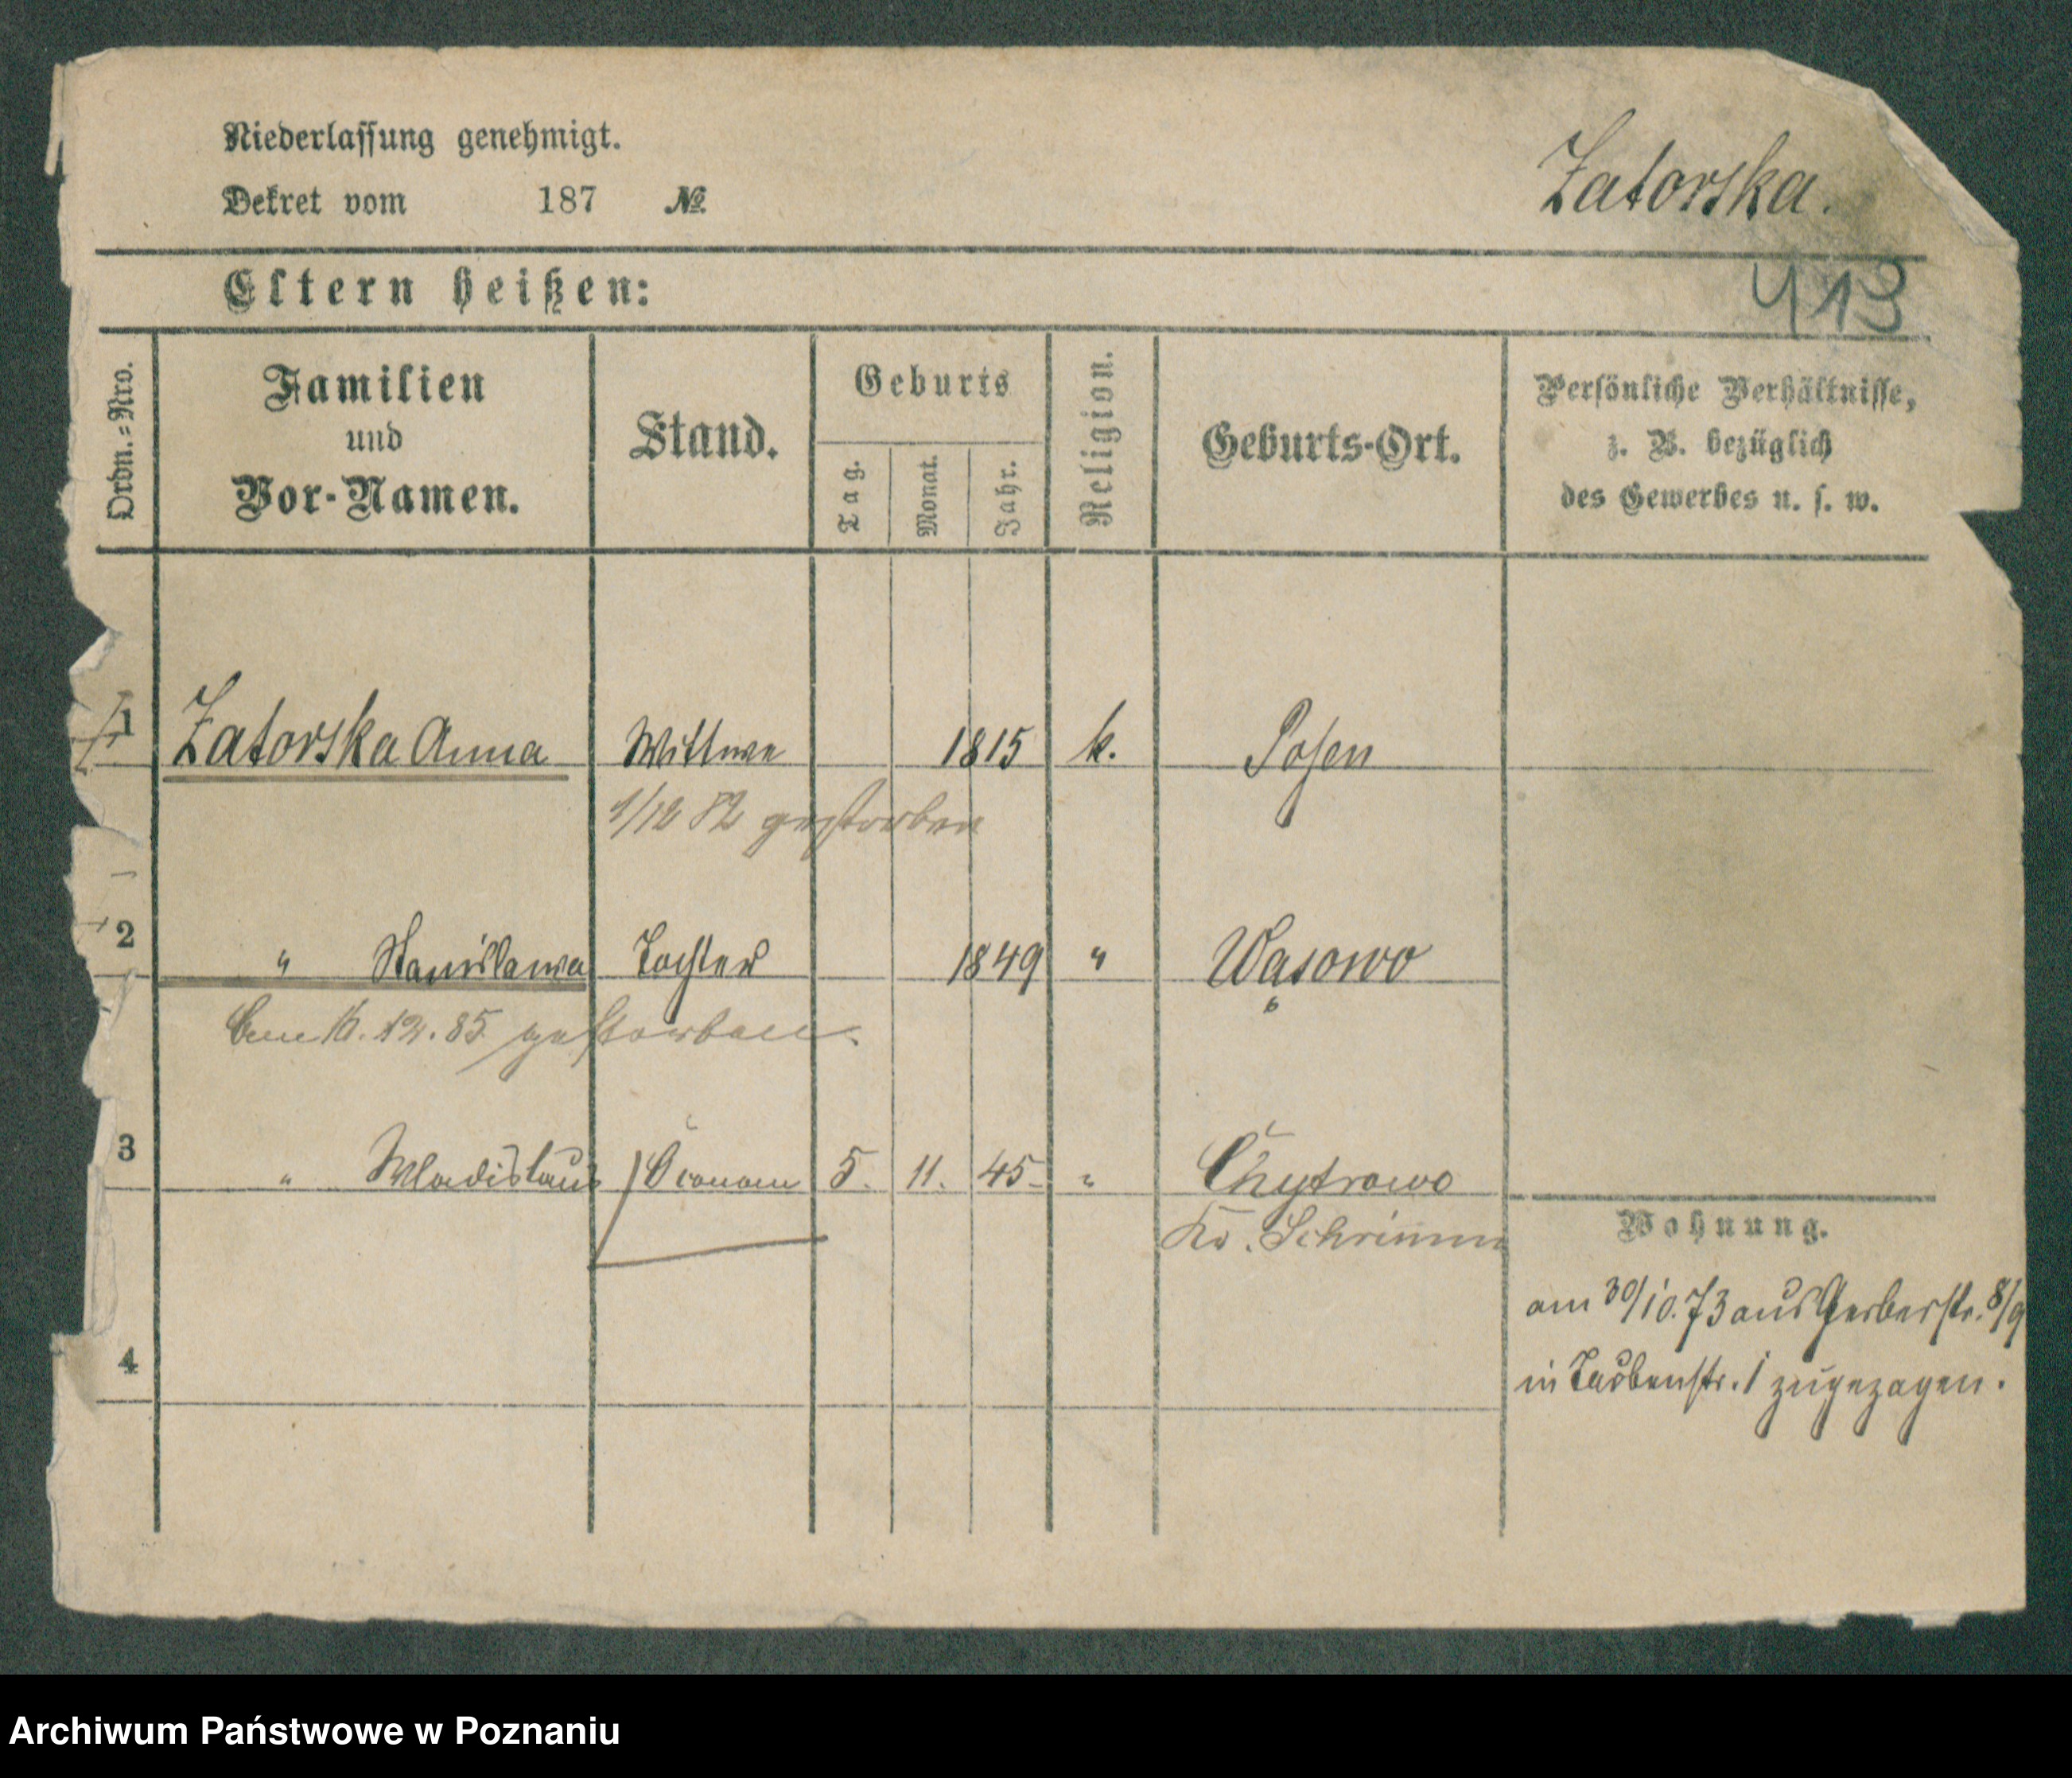 Niederlassung genehmigt.
Dekret vom 187 №
Zatorska.
413
Eltern heißen:
Ordn.-Nro.
Familien
und
Vor-Namen.
Stand.
Geburts
Tag.
Monat.
Jahr.
Religion.
Geburts-Ort.
Persönliche Verhältnisse,
z. B. bezüglich
des Gewerbes u. s. w.
1 Zatorska Anna Wittwe 1815 k. Posen
1/12 82 gestorben
2 " Stanislawa Tochter 1849 " Wąsowo
16. 12. 85 gestorben.
3 " Wladislaus Öconom 5. 11. 45 " Chytrowo
Kr. Schrimm
Wohnung.
am 30/10. 73 aus Gerberstr. 8/9
in Taubenstr. 1 zugezogen.
4
Archiwum Państwowe w Poznaniu